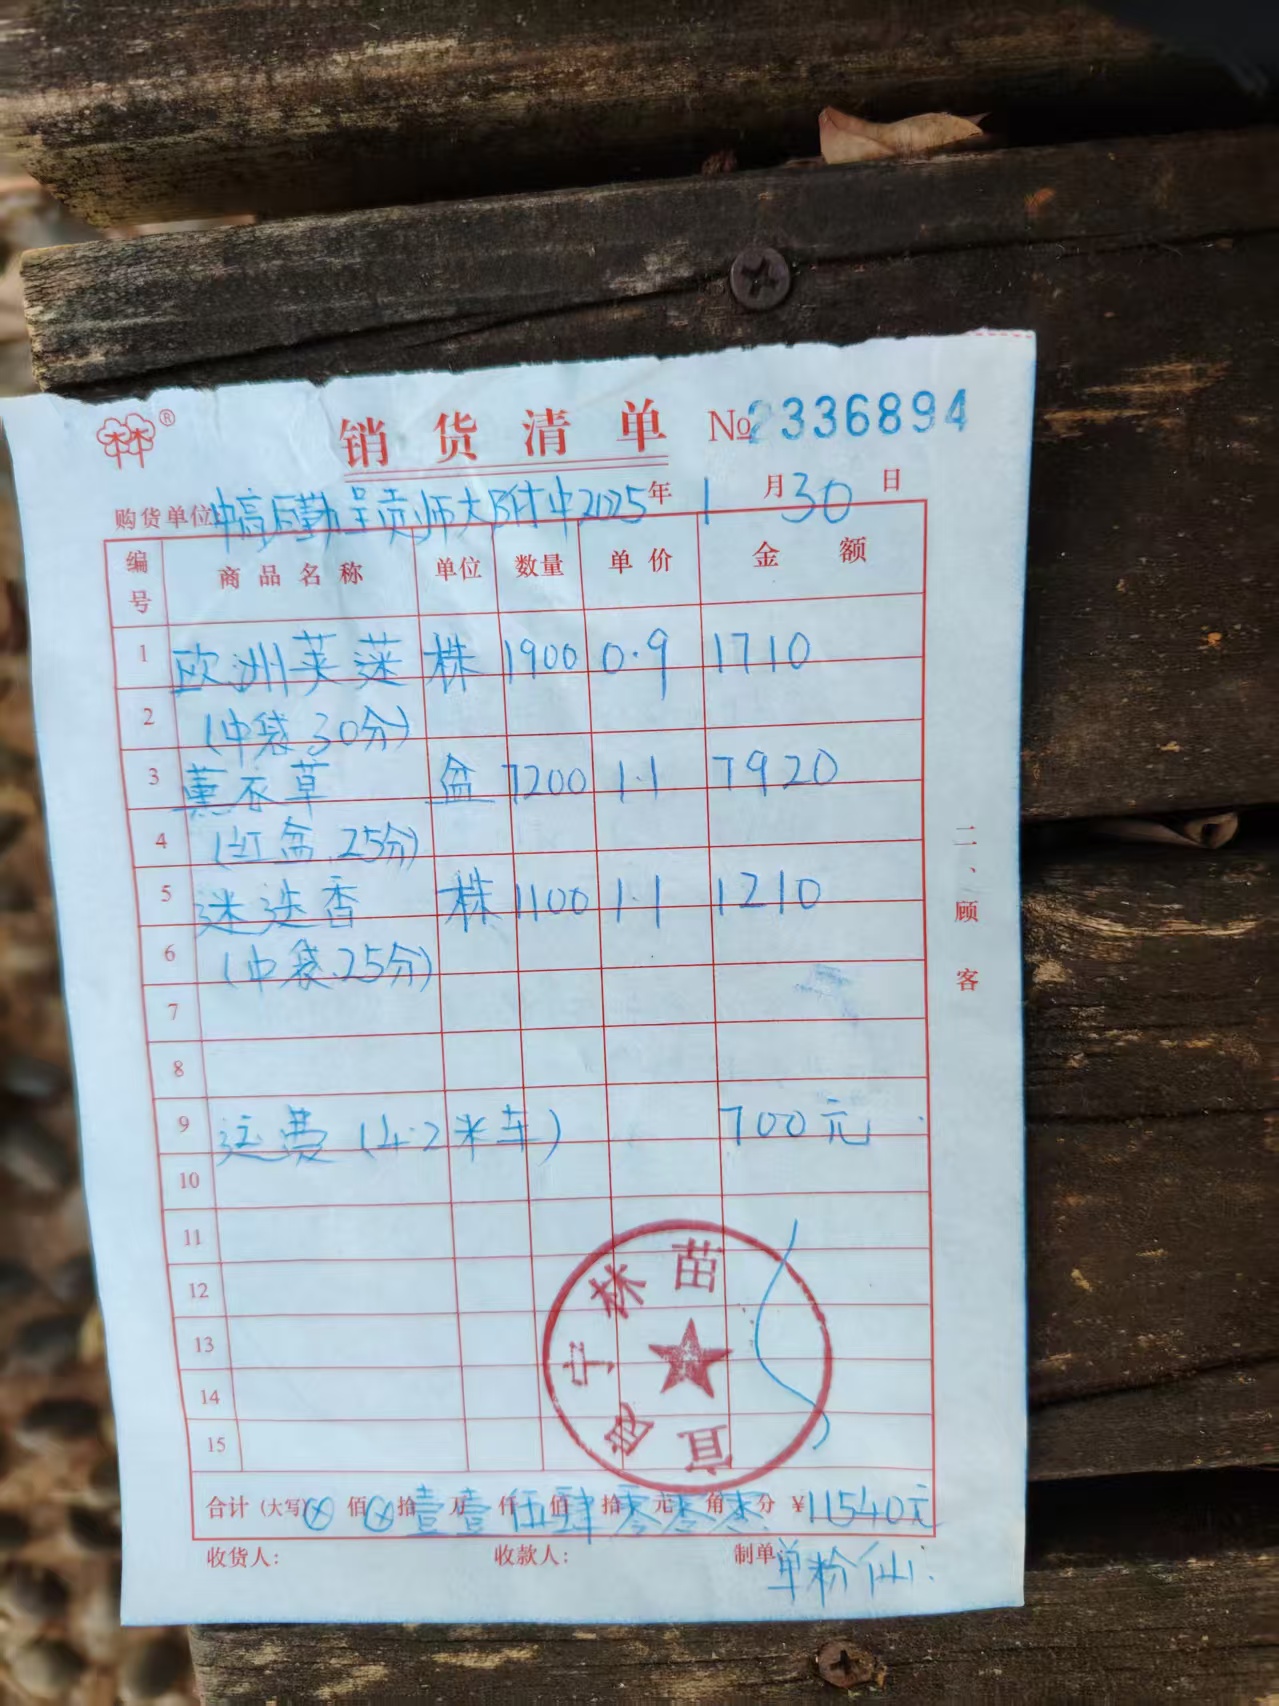 ®
销货清单 №2336894
购货单位 中高后勤呈贡师大附中 2025年1月30日
编号 商品名称 单位 数量 单价 金额
1 欧洲荚蒾 株 1900 0.9 1710
2 (中袋30分)
3 薰衣草 盆 7200 1.1 7920
4 (红盆.25分)
5 迷迭香 株 1100 1.1 1210
6 (中袋.25分)
7
8
9 运费(4.2米车) 700元
10
11
12
13
14
15
宜良宁林苗
合计(大写)⊗佰⊗拾壹万壹仟伍佰肆拾零元零角零分 ¥11540元
收货人: 收款人: 制单: 单粉仙
二、顾客